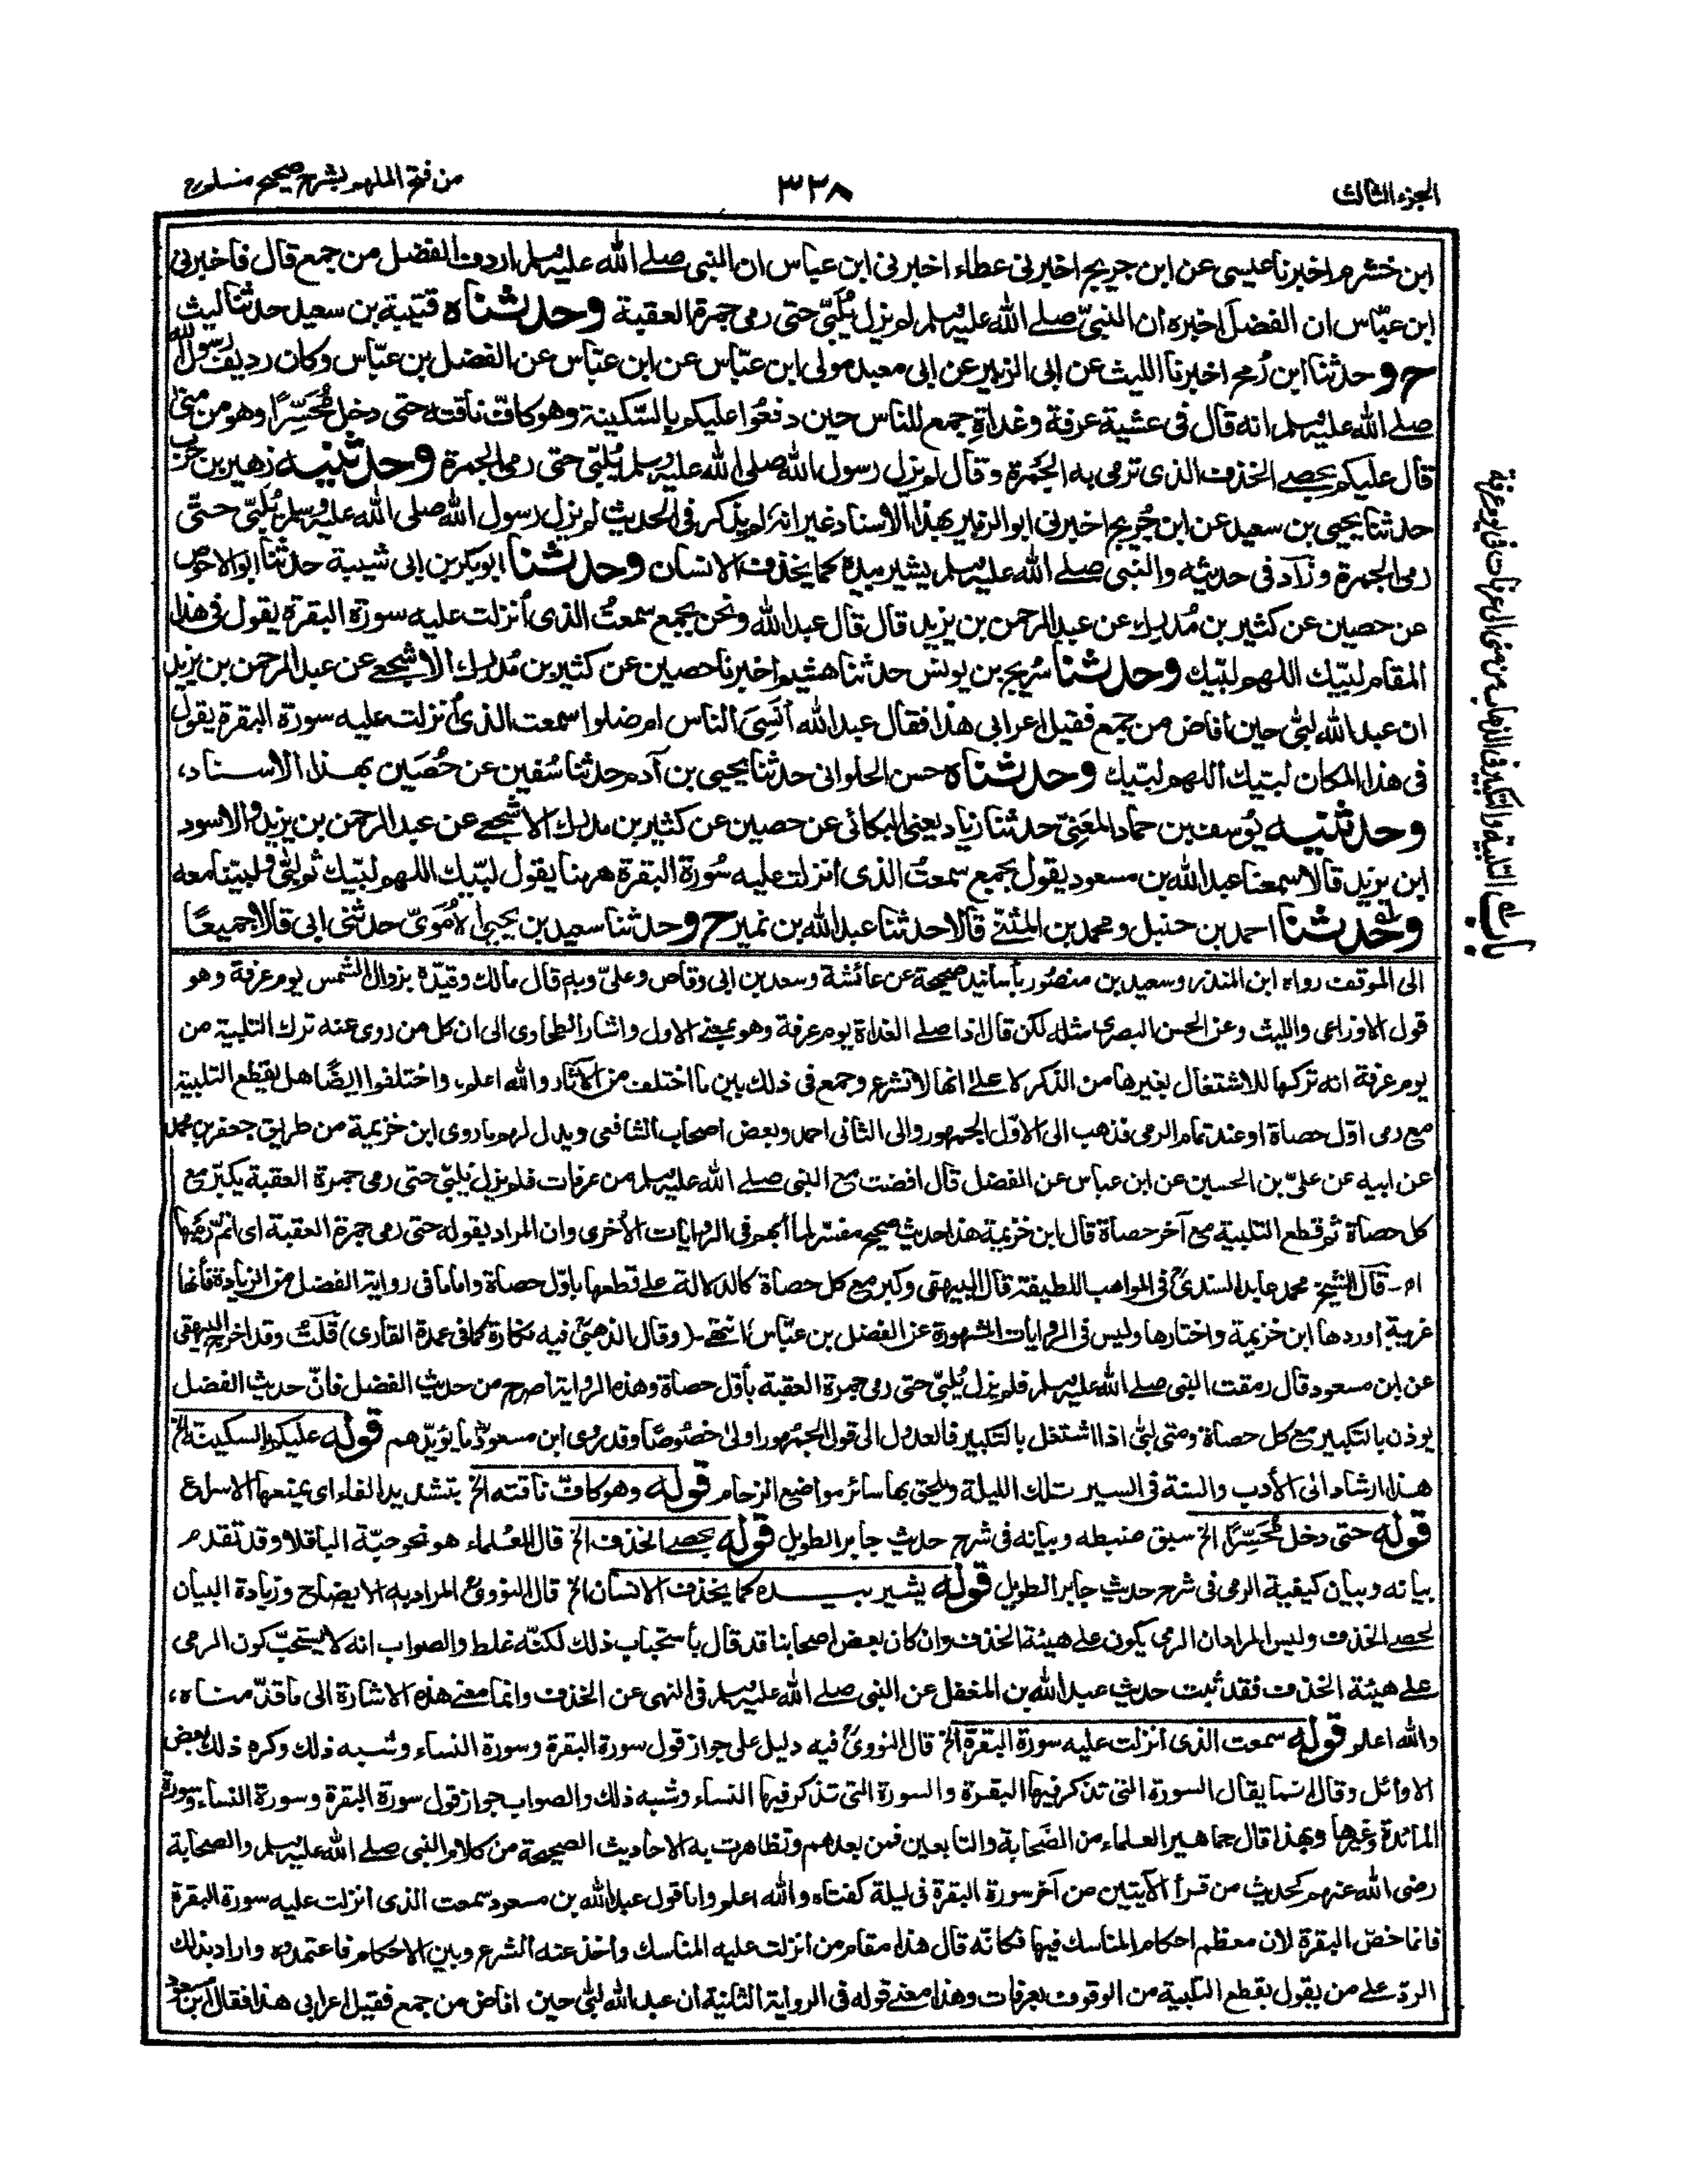 الجزء الثالث
٣٣٨
من فتح الملهم بشرح صحيح مسلم ج
ابن خشرم اخبرنا عيسى عن ابن جريج اخبرنى عطاء اخبرنى ابن عباس ان النبى صلے الله عليه وسلم اردف الفضل من جمع قال فاخبرنى
ابن عبّاس ان الفضل اخبره ان النبىّ صلے الله عليه وسلم لم يزل يُلَبِّى حتى رمى جمرة العقبة وحدثناه قتيبة بن سعيد حدثنا ليث
ح و حدثنا ابن رُمح اخبرنا الليث عن ابى الزبير عن ابى معبد مولى ابن عبّاس عن ابن عبّاس عن الفضل بن عبّاس وكان رديف رسول الله
صلے الله عليه وسلم انه قال فى عشية عرفة وغداة جمع للناس حين دفعُوا عليكم بالسّكينة وهو كافّ ناقته حتى دخل مُحَسِّرًا وهو من منىٰ
قال عليكم بحصے الخذف الذى ترمى به الجَمْرة وقال لم يزل رسول الله صلى الله عليه وسلم يُلبّى حتى رمى الجمرة وحدثنيه زهير بن حرب
حدثنا يحيى بن سعيد عن ابن جُريج اخبرنى ابو الزبير بهذا الاسناد غير انه لم يذكر فى الحديث لم يزل رسول الله صلى الله عليه وسلم يُلَبّى حتّى
رمى الجمرة وزاد فى حديثه والنبى صلے الله عليه وسلم يشير بيده كما يخذف الانسان وحدثنا ابو بكر بن ابى شيبة حدثنا ابو الاحوص
عن حصين عن كثير بن مُدرك عن عبد الرحمن بن يزيد قال قال عبد الله ونحن بجمع سمعتُ الذى أنزلت عليه سورة البقرة يقول فى هذا
المقام لبّيك اللهم لبّيك وحدثنا سُريج بن يونس حدثنا هشيم اخبرنا حصين عن كثير بن مُدرك الاشجعے عن عبد الرحمن بن يزيد
ان عبد الله لبّى حين افاض من جمع فقيل اعرابى هذا فقال عبد الله أنَسِىَ الناس ام ضلوا سمعت الذى أنزلت عليه سورة البقرة يقول
فى هذا المكان لبّيك اللهم لبّيك وحدثناه حسن الحلوانى حدثنا يحيى بن آدم حدثنا سُفين عن حُصَين بهذا الاسناد،
وحدثنيه يُوسف بن حماد المَعنِىّ حدثنا زياد يعنى البكائى عن حصين عن كثير بن مدرك الاشجعے عن عبد الرحمن بن يزيد والاسود
ابن يزيد قالا سمعنا عبد الله بن مسعود يقول بجمع سمعتُ الذى أنزلت عليه سُورة البقرة ههنا يقول لبّيك اللهم لبّيك ثم لبّى ولبينا معه
وحدثنا احمد بن حنبل ومحمد بن المثنّے قالا حدثنا عبد الله بن نمير ح وحدثنا سعيد بن يحيى الأمَوِىّ حدثنى ابى قالا جميعًا
باب التلبية والتكبير فى الذهاب من منى الى عرفات فى يوم عرفة
الى الموقف رواه ابن المنذر وسعيد بن منصُور بأسانيد صحيحة عن عائشة وسعد بن ابى وقاص وعلىّ وبه قال مالك وقيّده بزوال الشمس يوم عرفة وهو
قول الاوزاعى والليث وعن الحسن البصرى مثله لكن قال اذا صلے الغداة يوم عرفة وهو بمعنے الاول واشار الطحاوى الى ان كل من روى عنه ترك التلبية من
يوم عرفة انه تركها للاشتغال بغيرها من الذكر لا علے انها لا تشرع وجمع فى ذلك بين ما اختلف من الآثار والله اعلم، واختلفوا ايضًا هل يقطع التلبية
مع رمى اوّل حصاة او عند تمام الرمى فذهب الى الاوّل الجمهور والى الثانى احمد وبعض اصحاب الشافعى ويدل لهم ما روى ابن خزيمة من طريق جعفر بن محمد
عن ابيه عن علىّ بن الحسين عن ابن عباس عن الفضل قال افضت مع النبى صلے الله عليه وسلم من عرفات فلم يزل يلبّى حتى رمى جمرة العقبة يكبّر مع
كل حصاة ثم قطع التلبية مع آخر حصاة قال ابن خزيمة هذا حديث صحيح مفسّر لما أبهم فى الروايات الأخرى وان المراد بقوله حتى رمى جمرة العقبة اى اتمّ رميها
اھ- قال الشيخ محمد عابد السندىؒ فى المواهب اللطيفة قال البيهقى وكبر مع كل حصاة كالدلالة على قطعها باوّل حصاة واما ما فى رواية الفضل من الزيادة فانها
غريبة أوردها ابن خزيمة واختارها وليس فى الروايات المشهورة عن الفضل بن عبّاس انتهے- (وقال الذهبىؒ فيه نكارة كما فى عمدة القارى) قلتُ وقد اخرج البيهقى
عن ابن مسعود قال رمقت النبى صلے الله عليه وسلم فلم يزل يُلبّى حتى رمى جمرة العقبة بأوّل حصاة وهذه الرواية اصرح من حديث الفضل فانّ حديث الفضل
يوذن بالتكبير مع كل حصاة ومتى لبّى اذا اشتغل بالتكبير فالعدول الى قول الجمهور اولى خصُوصًا وقد روى ابن مسعودؓ ما يؤيّدهم قوله عليكم بالسكينة الخ
هذا ارشاد الى الأدب والسنة فى السير تلك الليلة ويلحق بها سائر مواضع الزحام قوله وهو كافّ ناقته الخ بتشديد الفاء اى يمنعها الاسراع
قوله حتى دخل مُحَسِّرًا الخ سبق ضبطه وبيانه فى شرح حديث جابر الطويل قوله بحصے الخذف الخ قال العُلماء هو نحو حبّة الباقلا وقد تقدم
بيانه وبيان كيفية الرمى فى شرح حديث جابر الطويل قوله يشير بيده كما يخذف الانسان الخ قال النووىؒ المراد به الايضاح وزيادة البيان
لحصے الخذف وليس المراد ان الرمى يكون على هيئة الخذف وان كان بعض اصحابنا قد قال باستحباب ذلك لكنّه غلط والصواب انه لا يستحبّ كون الرمى
على هيئة الخذف فقد ثبت حديث عبد الله بن المغفل عن النبى صلے الله عليه وسلم فى النهى عن الخذف وانما معنے هذه الاشارة الى ما قدّمناه،
والله اعلم قوله سمعت الذى أنزلت عليه سورة البقرة الخ قال النووىؒ فيه دليل على جواز قول سورة البقرة وسورة النساء وشبه ذلك وكره ذلك بعض
الاوائل وقال انما يقال السورة التى تذكر فيها البقرة والسورة التى تذكر فيها النساء وشبه ذلك والصواب جواز قول سورة البقرة وسورة النساء وسورة
المائدة وغيرها وبهذا قال جماهير العلماء من الصَّحابة والتابعين فمن بعدهم وتظاهرت به الاحاديث الصحيحة من كلام النبى صلے الله عليه وسلم والصحابة
رضى الله عنهم كحديث من قرأ الآيتين من آخر سورة البقرة فى ليلة كفتاه والله اعلم واما قول عبد الله بن مسعود سمعت الذى انزلت عليه سورة البقرة
فانما خصّ البقرة لان معظم احكام المناسك فيها فكانّه قال هذا مقام من أنزلت عليه المناسك واخذ عنه الشرع وبين الاحكام فاعتمدوه واراد بذلك
الردّ على من يقول بقطع التلبية من الوقوف بعرفات وهذا معنے قوله فى الرواية الثانية ان عبد الله لبّى حين افاض من جمع فقيل اعرابى هذا فقال ابن مسعود